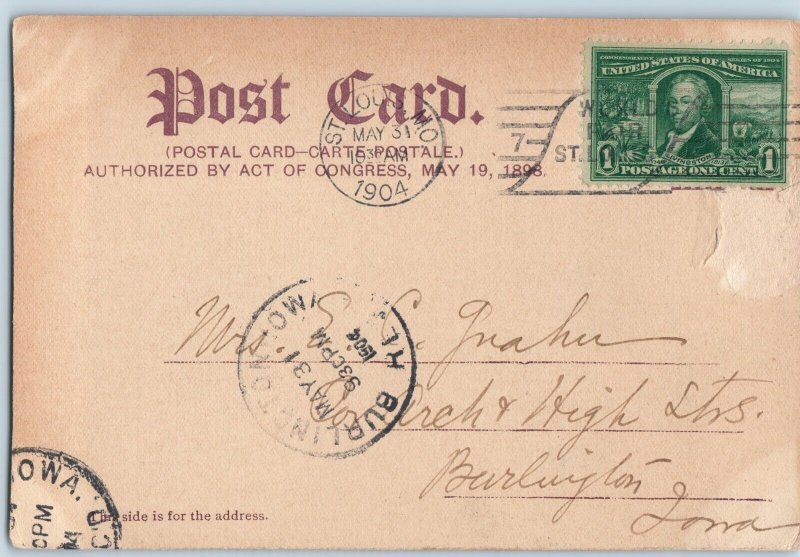 COMMEMORATIVE SERIES OF 1904
UNITED STATES OF AMERICA
Post Card.
ST. LOUIS, MO.
MAY 31
10 30 AM
1904
7
WORLD'S
FAIR
ST. L
LIVINGSTON
1 POSTAGE ONE CENT 1
(POSTAL CARD—CARTE POSTALE.)
AUTHORIZED BY ACT OF CONGRESS, MAY 19, 1898.
BURLINGTON IOWA
MAY 31
930PM
1904
Mrs. E. C.
& High Strs.
Burlington
Iowa
IOWA.
PM
This side is for the address.